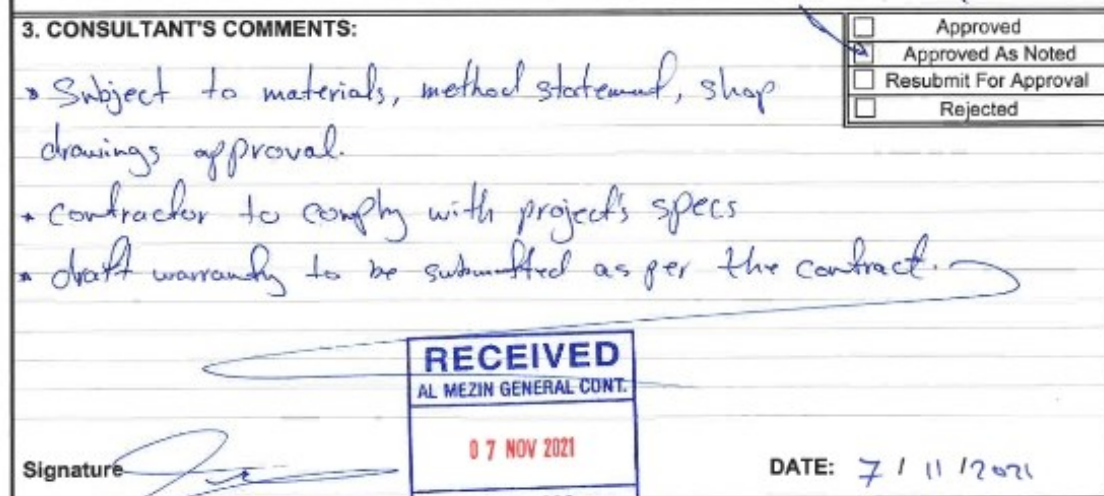 3. CONSULTANT'S COMMENTS:
Approved
Approved As Noted
Resubmit For Approval
Rejected
* Subject to materials, method statement, shop
drawings approval.
* Contractor to comply with project's specs
* draft warranty to be submitted as per the contract.
RECEIVED
AL MEZIN GENERAL CONT.
07 NOV 2021
Signature
DATE: 7 / 11 / 2021